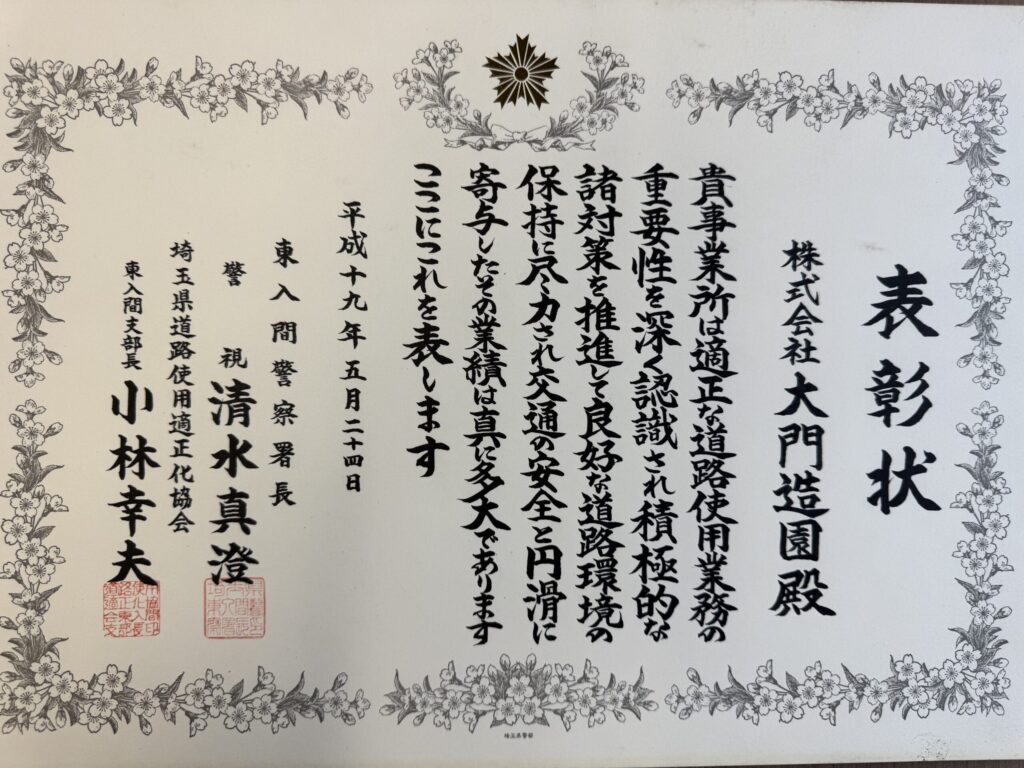 表彰状
株式会社 大門造園殿
貴事業所は適正な道路使用業務の
重要性を深く認識され積極的な
諸対策を推進して良好な道路環境の
保持に尽力され交通の安全と円滑に
寄与したその業績は真に多大であります
ここにこれを表します
平成十九年五月二十四日
東入間警察署長
警視 清水真澄
埼玉県道路使用適正化協会
東入間支部長 小林幸夫
埼玉県警察